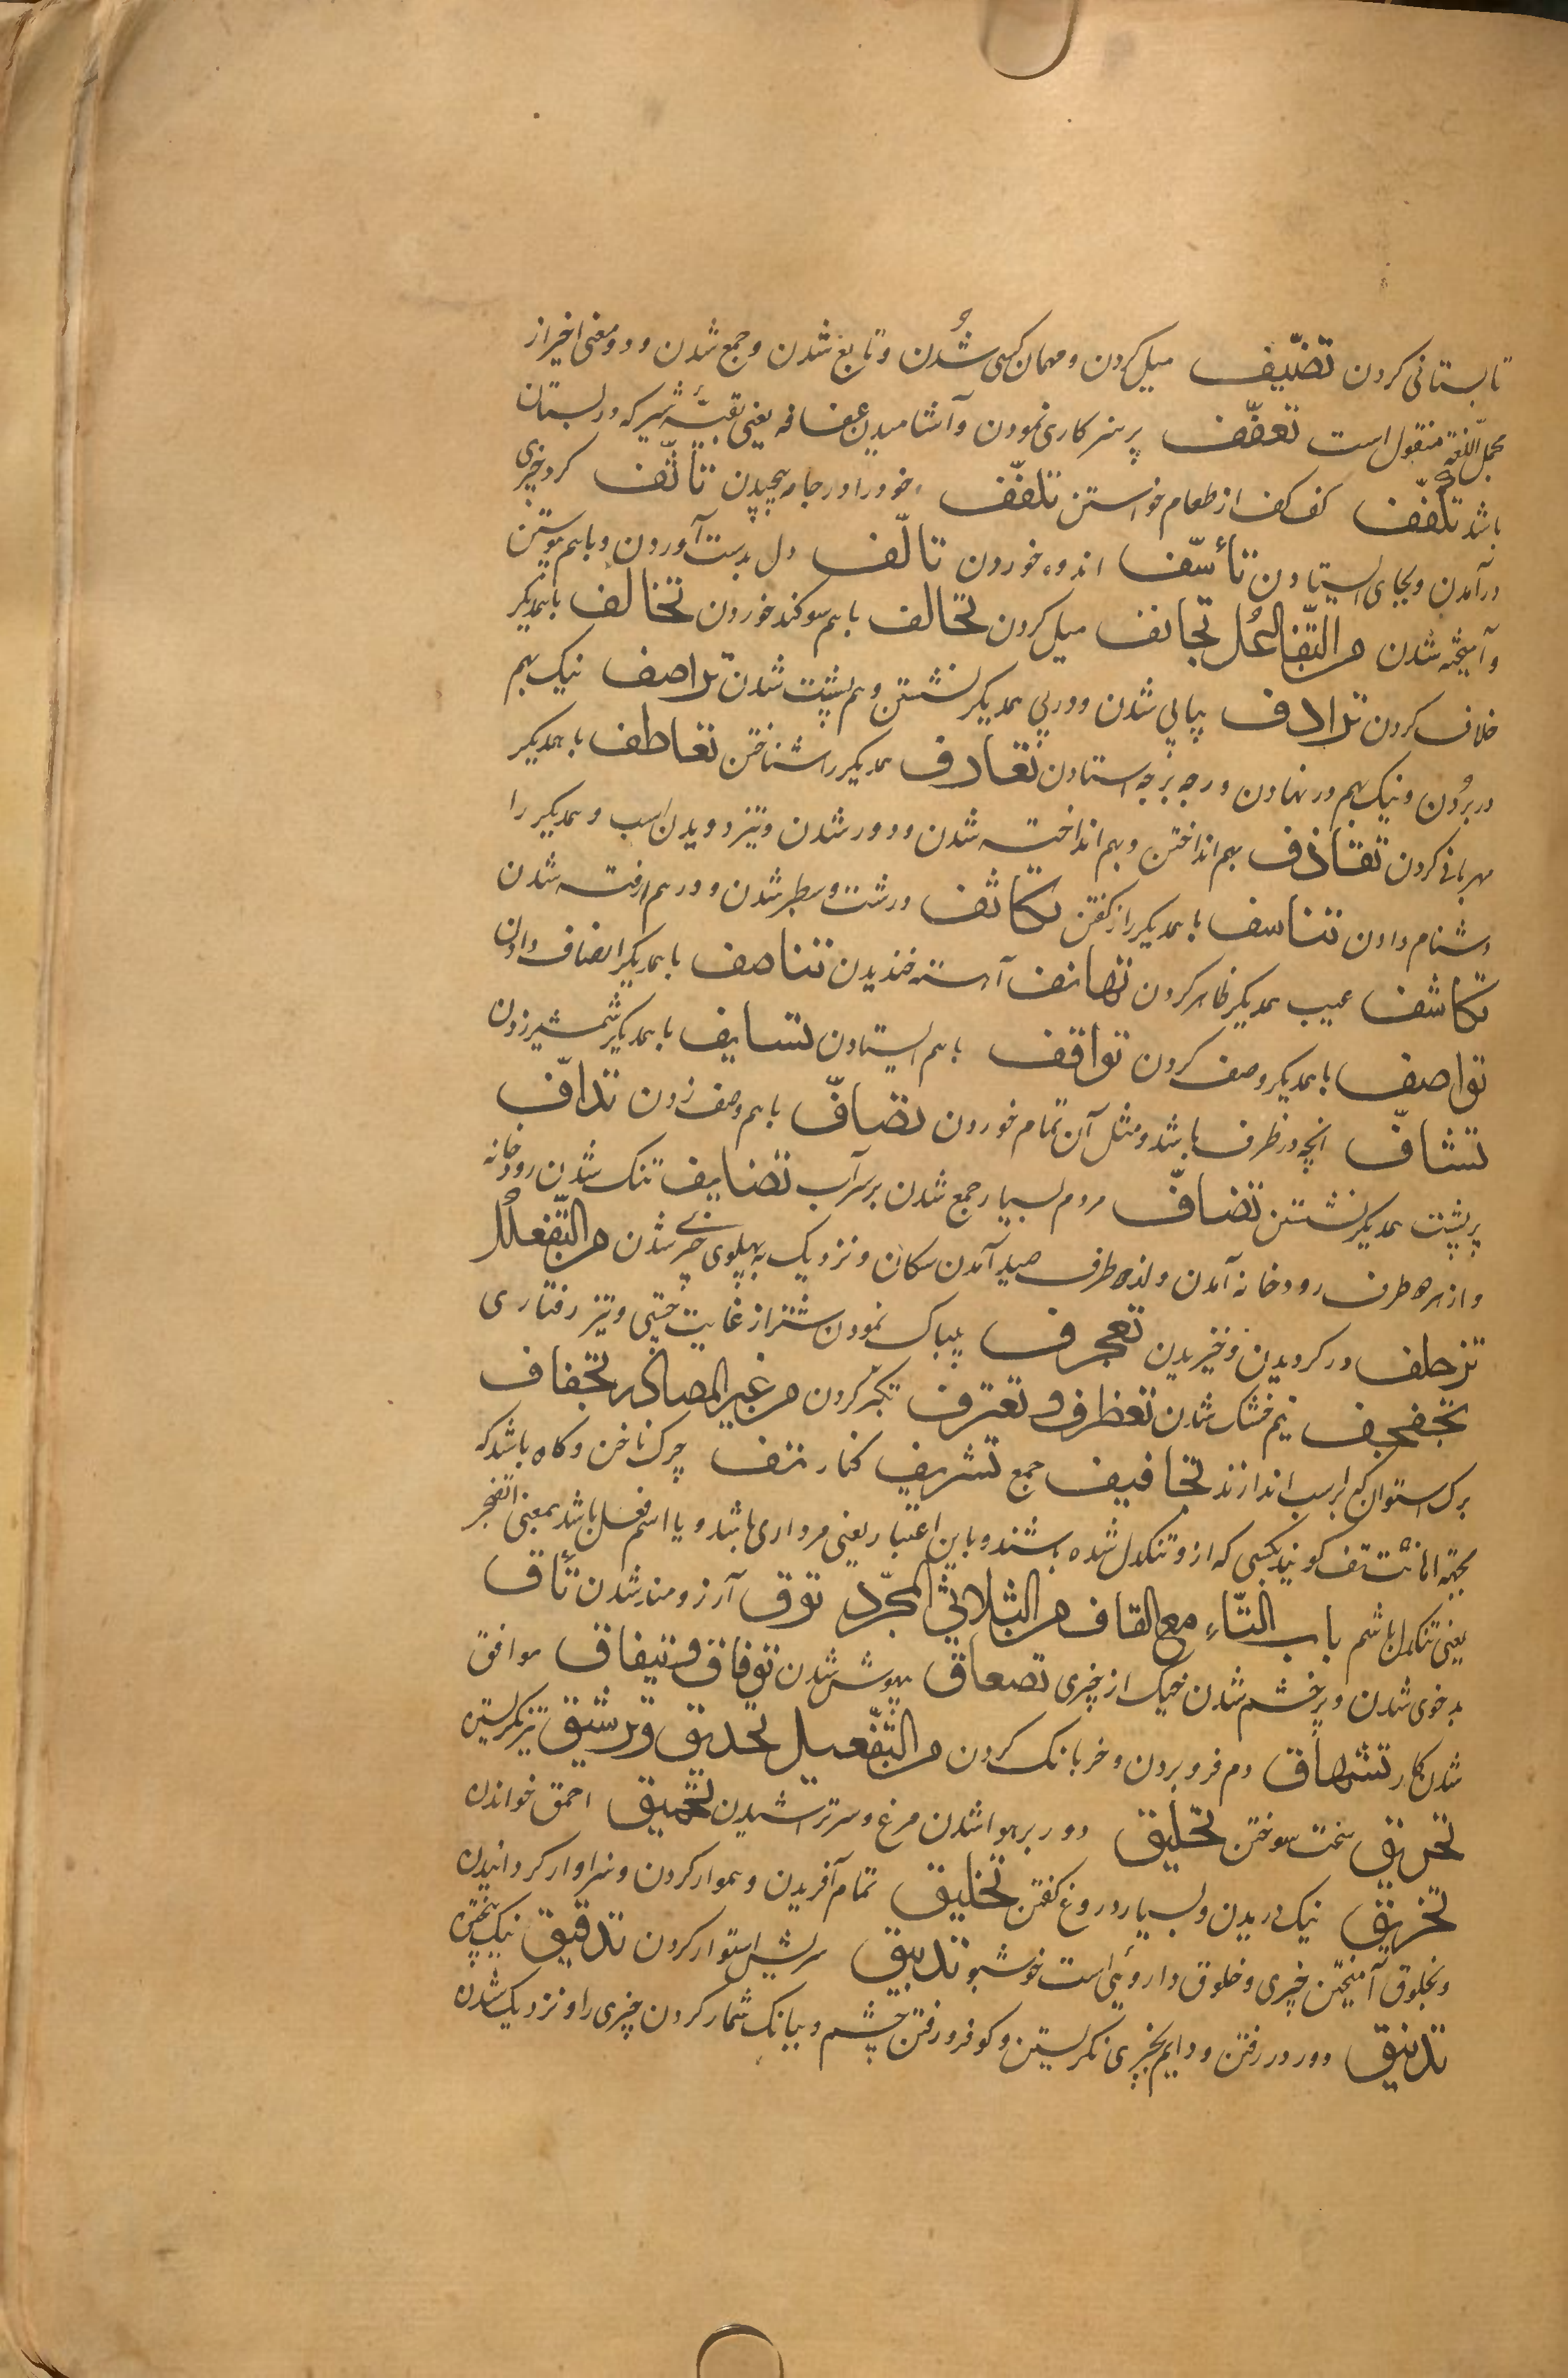 تابستانی کردن تضیّف میل کردن و مهمان کسی شدن و تابع شدن و جمع شدن و دو معنی اخیر از
مجمل اللغة منقول است تعفّف پرهیزکاری نمودن و آشامیدن عفافه یعنی بقیّه شیر که در پستان
باشد تکفّف کف کف از طعام خواستن تلفّف خود را در جامه پیچیدن تأثّف گرد چیزی
درآمدن و بجای ایستادن تأسّف اندوه خوردن تألّف دل بدست آوردن و باهم پیوستن
و آمیخته شدن من التّفاعُل تجانف میل کردن تحالف باهم سوکند خوردن تخالف باهمدیکر
خلاف کردن ترادف پیاپی شدن و در پی همدیکر نشستن و هم پشت شدن تراصف نیک بهم
در بردن و نیک بهم در نهادن و رجه برجه استادن تعارف همدیکر را شناختن تعاطف باهمدیکر
مهربانی کردن تقاذف بهم انداختن و بهم انداخته شدن و دور شدن و تیز دویدن اسب و همدیکر را
دشنام دادن تناسف باهمدیکر راز کفتن تکاثف درشت و سطبر شدن و درهم رفته شدن
تکاشف عیب همدیکر ظاهر کردن تهانف آهسته خندیدن تناصف باهمدیکر انصاف دادن
تواصف باهمدیکر وصف کردن تواقف باهم ایستادن تسایف باهمدیکر شمشیر زدن
تشافّ آنچه در ظرف باشد و مثل آن تمام خوردن تصافّ باهم صف زدن تدافّ
بر پشت همدیکر نشستن تضافّ مردم بسیار جمع شدن بر سر آب تضایف تنک شدن رودخانه
و از هر دو طرف رودخانه آمدن و از دو طرف صید آمدن سکان و نزدیک به پهلوی چیزی شدن من التّفعلُل
تزحلف در کردیدن و خیزیدن تعجرف بیباک نمودن شتر از غایت چستی و تیز رفتاری
تجفجف نیم خشک شدن تغطرف و تغترف تکبّر کردن من غیر المصادر تجفاف
برک استوان که بر اسب اندازند تجافیف جمع تشریف کنار تف چرک ناخن و کاه باشد که
بجهة اهانت تف کویند بکسی که از و تنکدل شده باشند و باین اعتبار یعنی مرداری باشد و یا اسم فعل باشد بمعنی اتضجر
یعنی تنکدل باشم باب التّاء مع القاف من الثلاثی المجرّد توق آرزومند شدن تأق
بدخوی شدن و پر خشم شدن خیک از چیزی تصعاق بیهوش شدن توفاق و تیفاق موافق
شدن کار تشهاق دم فرو بردن و خر بانک کردن من التّفعیل تحدیق و ترشیق تیز نکریستن
تحریق سخت سوختن تحلیق دور بر هوا شدن مرغ و سر تراشیدن تحمیق احمق خواندن
تخریق نیک دریدن و بسیار دروغ کفتن تخلیق تمام آفریدن و هموار کردن و سزاوار کردانیدن
و بخلوق آمیختن چیزی و خلوق داروئی است خوشبو تدبیق سریش استوار کردن تدقیق نیک پختن
تدنیق دور در رفتن و دایم بچیزی نکریستن و کو فرو رفتن چشم و ببانک شمار کردن چیزی را و نزدیک شدن